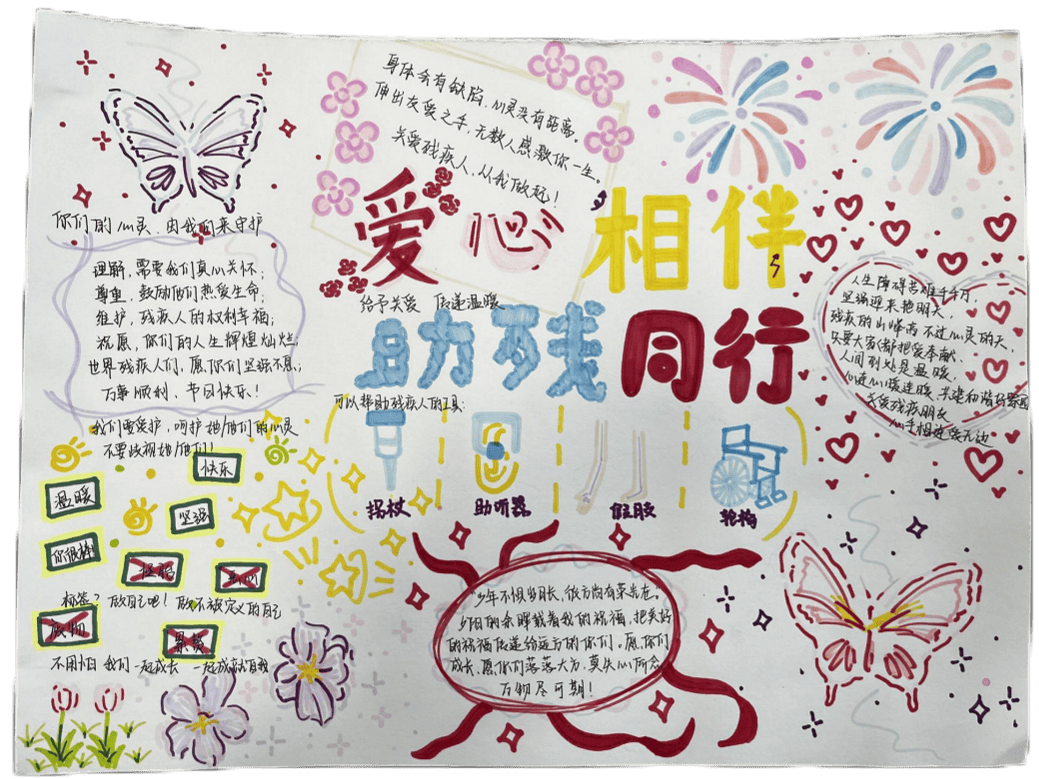 身体会有缺陷，心灵没有距离。
伸出友爱之手，无数人感激你一生。
关爱残疾人，从我做起！
爱心相伴
给予关爱 传递温暖
助残同行
你们的心灵，由我们来守护
理解，需要我们真心关怀；
尊重，鼓励他们热爱生命；
维护，残疾人的权利幸福；
祝愿，你们的人生辉煌灿烂；
世界残疾人们，愿你们坚强不息；
万事顺利，节日快乐！
我们要爱护，呵护他/他们的心灵
不要歧视她/他们！
快乐
温暖
坚强
你很棒
标签？做自己吧！做不被定义的自己
累赘
不用怕 我们一起成长 一起成就自我
可以帮助残疾人的工具：
拐杖
助听器
假肢
轮椅
人生障碍苦难千千万，
坚强迎来艳明天，
残疾的山峰高不过心灵的天，
只要大家都把爱奉献，
人间到处是温暖，
心连心暖连暖，共建和谐好家园
关爱残疾朋友
心手相连爱无边
“少年不惧岁月长，彼方尚有荣光在。”
夕阳的余晖载着我的祝福，把美好
的祝福传递给远方的你们，愿你们
成长，愿你们落落大方，真失心所念
万物尽可期！